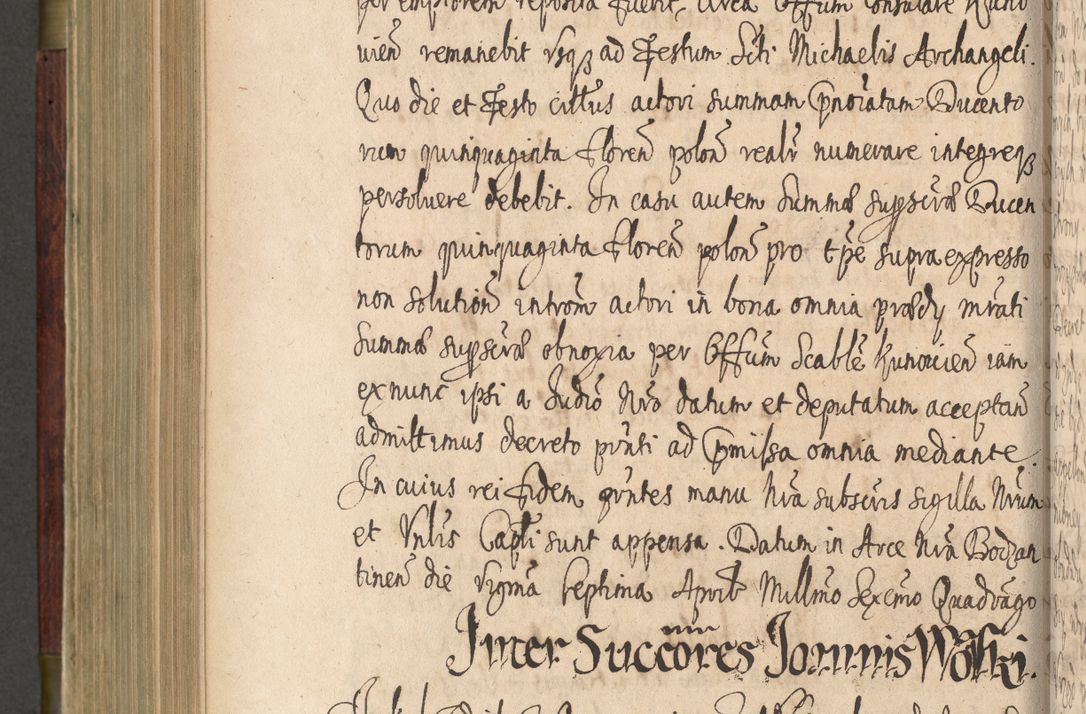 per emptorem reposita fuerit, circa Offum Consulare Kuno
vien remanebit usqß ad Festum Scti Michaelis Archangeli.
Quo die et Festo citius actori summam pnoiatam Ducento
rum quinquaginta Floren polon realr numerare integreqß
persoluere debebit. In casu autem Summæ suppscræ Ducen
torum quinquaginta Floren polon pro tpe supra expresso
non solution introm actori in bona omnia prædij mrati
Summæ suppscræ obnoxia per Offum Scable Kunovien iam
ex nunc ipsi a Judio Nro datum et deputatum acceptan
admittimus decreto pnti ad pmissa omnia mediante.
In cuius rei Fidem pntes manu Nra subscris sigilla Nrum
et Vnlis Capli sunt appensa. Datum in Arce Nra Bodzan
tinen die Vigma septima Aprilis Millmo Sexcmo Quadrago
Inter Succores Joannis Wolski.